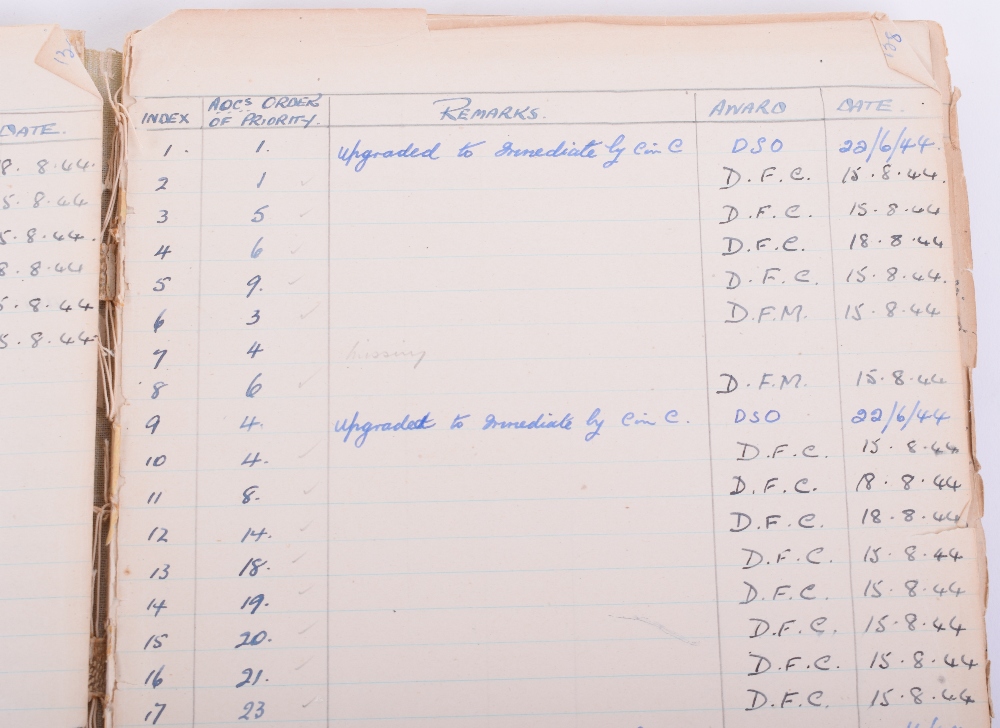 13
38
DATE.
8. 8.44.
5. 8.44
5.8.44.
8.8.44
5.8.44
5.8.44
INDEX AOCs ORDER OF PRIORITY. REMARKS. AWARD DATE.
1. 1. Upgraded to Immediate by C in C DSO 22/6/44.
2 1 D.F.C. 15.8.44.
3 5 D.F.C. 15.8.44
4 6 D.F.C. 18.8.44
5 9. D.F.C. 15.8.44.
6 3 D.F.M. 15.8.44
7 4 Missing
8 6 D.F.M. 15.8.44
9 4. Upgraded to Immediate by C in C. DSO 22/6/44
10 4. D.F.C. 15.8.44
11 8. D.F.C. 18.8.44
12 14. D.F.C. 18.8.44
13 18. D.F.C. 15.8.44
14 19. D.F.C. 15.8.44
15 20. D.F.C. 15.8.44
16 21. D.F.C. 15.8.44
17 23 D.F.C. 15.8.44